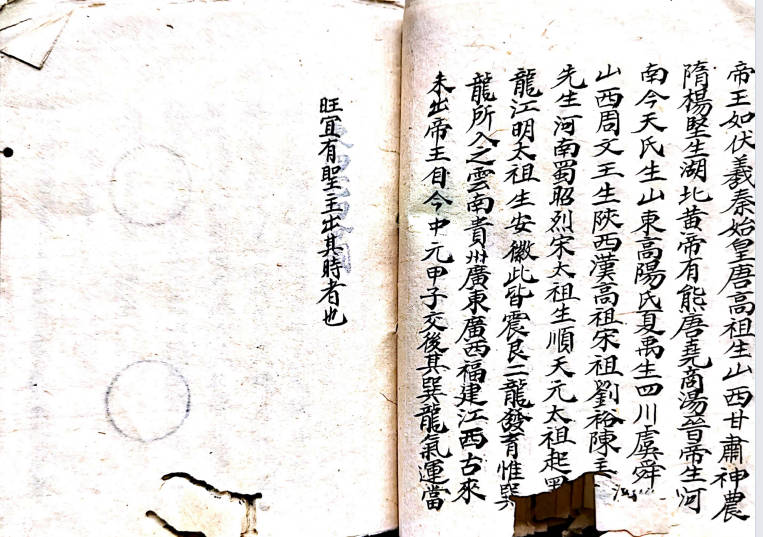 帝王如伏羲秦始皇唐高祖生山西甘肅神農
隋楊堅生湖北黄帝有熊唐堯商湯晉帝生河
南今天氏生山東高陽氏夏禹生四川虞舜
山西周文王生陝西漢高祖宋祖劉裕陳主
先生河南蜀昭烈宋太祖生順天元太祖起黑
龍江明太祖生安徽此皆震艮二龍發育惟巽
龍所入之雲南貴州廣東廣西福建江西古來
未出帝王自今中元甲子交後其巽龍氣運當
旺宜有聖主出其時者也